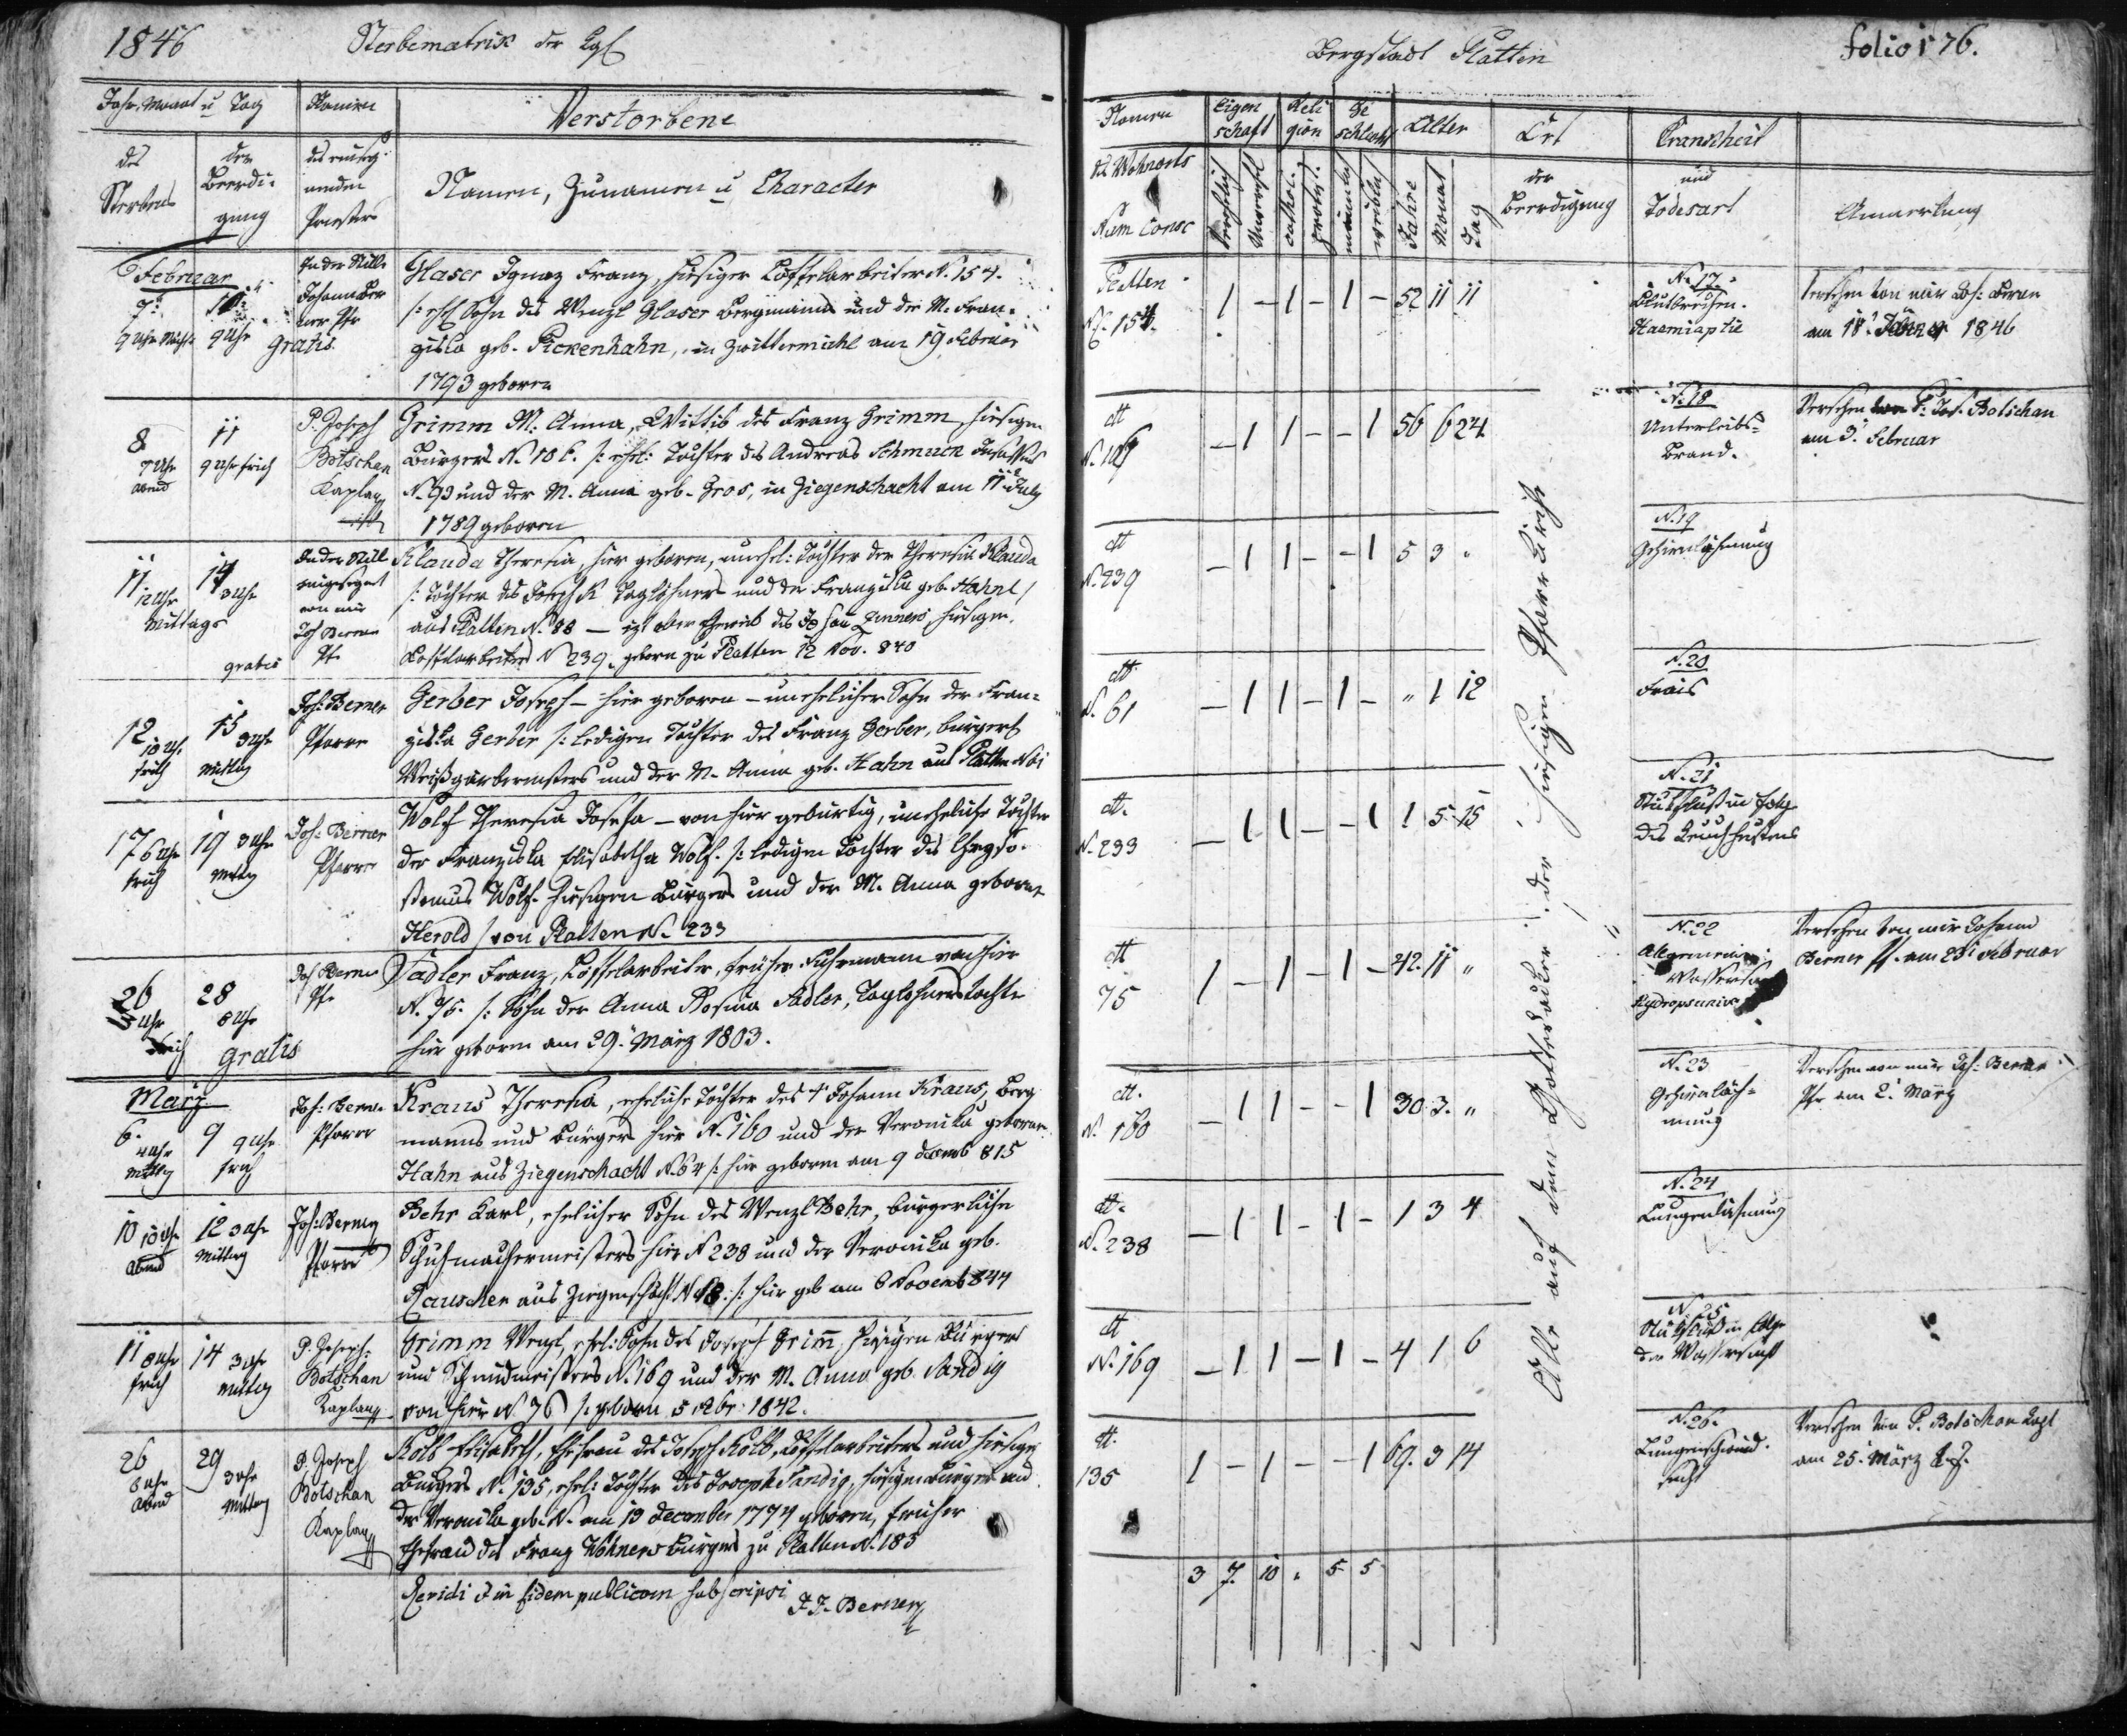 1846 Sterbematrik der kgl
Jahr, Monat u Tag Namen Verstorbene
des Sterbens
der Beerdi-
gung
des einseg-
nenden
Priesters
Namen, Zunamen u Character
Februar
7.
9 Uhr
9 Uhr
Gratis
In der Stille
Johann Ber
ner Pfr
Glaser Ignaz Franz, hiesiger Löffelarbeiter N. 154.
/: ehl Sohn des Wenzl Glaser Bergmanns und der M. Fran-
ziska geb. Pickenhahn, in Zwittermühl am 19 Februar
1793 geboren
8
7 Uhr
Abend
11
9 Uhr früh
P. Joseph
Botschan
Kaplan
Grimm M. Anna, Wittib des Franz Grimm, hiesigen
Bürgers N. 186. /: ehel: Tochter des Andreas Schmuck
N. 93 und der M. Anna geb. Gros, in Ziegenschacht am 11 July
1789 geboren
11
12 Uhr
Mittags
14
3 Uhr
gratis
In der Still
eingesegnet
von mir
Joh Berner
Pfr
Klauda Theresia, hier geboren, unehel: Tochter der Theresia Klauda
/: Tochter des Joseph K Taglöhners und der Franziska geb. Hahnl /
aus Platten N. 88 — Eheweib des Johann hiesigen
Löffelarbeiters N 239. geboren zu Platten 12 Nov. 840
12
10 Uhr
früh
15
3 Uhr
Mittag
Joh: Berner
Pfarrer
Gerber Joseph - hier geboren - unehelicher Sohn der Fran-
ziska Gerber /: ledigen Tochter des Franz Gerber, bürgerl
Weißgärbermeisters und der M. Anna geb. Hahn aus Platten N 61
17
6 Uhr
früh
19 3 Uhr
Mittag
Joh: Berner
Pfarrer
Wolf Theresia Josefa - von hier gebürtig, uneheliche Tochter
der Franziska Elisabetha Wolf. /: ledigen Tochter des Chryso-
stomus Wolf hiesigen Bürgers und der M. Anna geborne
Herold / von Platten N. 233
26
5 Uhr
früh
28
8 Uhr
Gratis
Joh Berner
Pfr
Sadler Franz, Löffelarbeiter, früher Fuhrmann von hier
N. 75. /: Sohn der Anna Rosina Sadler, Taglöhnerstochter
hier geboren am 29. März 1803.
März
6.
4 Uhr
Mittag
9 9 Uhr
früh
Joh: Berner
Pfarrer
Kraus Theresia, eheliche Tochter des † Johann Kraus, Berg
manns und Bürgers hier N. 160 und der Veronika geborne
Hahn aus Ziegenschacht N. 64 /: hier geboren am 9 Decemb 815
10 10 Uhr
Abend
12 3 Uhr
Mittag
Joh: Berner
Pfarrer
Behr Karl, ehelicher Sohn des Wenzl Behr, bürgerlichen
Schuhmachermeisters hier N 238 und der Veronika geb.
Rauscher aus Ziegenschacht N 18. /: hier geb am 6 Novemb 844
11 8 Uhr
früh
14 3 Uhr
Mittag
P. Joseph
Botschan
Kaplan
Grimm Wenzl, ehel: Sohn des Joseph Grimm, hiesigen Bürgers
und Schmidmeisters N. 169 und der M. Anna geb. Sandig
von hier N. 76 /: geboren 5 1842.
26
8 Uhr
Abend
29
3 Uhr
Mittag
P. Joseph
Botschan
Kaplan
Kolb Elisabeth, Ehefrau des Joseph Kolb, Löffelarbeiters und hiesigen
Bürgers N. 135, ehel: Tochter des Joseph Sandig, hiesigen Bürgers und
der Veronika geb. N. am 13 December 1774 geboren, früher
Ehefrau des Franz Wohners Bürgers zu Platten N. 183
Revidi et in fidem publicam subscripsi
J. J. Berner
Bergstadt Platten folio 176.
Namen
des Wohnorts
Num Consc
Eigen
schaft
Reli
gion
Ge
schlecht
Alter
Ort
der
Beerdigung
Krankheit
und
Todesart
Anmerkung
cathol.
protest.
männlich
weiblich
Jahre
Monat
Tag
Platten
N. 154. 1 - 1 - 1 - 52 11 11
N. 17.
Blutbrechen.
Versehen von mir Joh: Berner
am 1846
dt
- 1 1 - - 1 56 6 24
N. 18
Unterleibs-
Brand.
Versehen von P. Jos. Botschan
am 5. Februar
dt
N. 239 - 1 1 - - 1 5 3 "
N. 19
Gehirnlähmung
dt
N. 61 - 1 1 - 1 - " 1 12
N. 20
Frais
dt.
N. 233 - 1 1 - - 1 1 5 15
N. 21
Stickfluß in Folge
des Keuchhustens
dt
75 1 - 1 - 1 - 42 11 "
N. 22
Allgemeine
Wassersucht
Versehen von mir Johann
Berner Pfr. am 25 Februar
dt.
N. 160 - 1 1 - - 1 30 3. "
N. 23
Gehirnläh-
mung
Versehen von mir Joh: Berner
Pfr am 2. März
dt.
N. 238 - 1 1 - 1 - 1 3 4
N. 24
Lungenlähmung
dt
N. 169 - 1 1 - 1 - 4 1 6
N. 25
Stickfluß in Folge
der Wassersucht
dt.
135 1 - 1 - - 1 69. 3 14
N. 26.
Lungenschwind-
sucht
Versehen von P. Botschan Kapl
am 25. März
Alle auf dem Gottesacker der hiesigen Pfarrkirche
3 7. 10 " 5 5